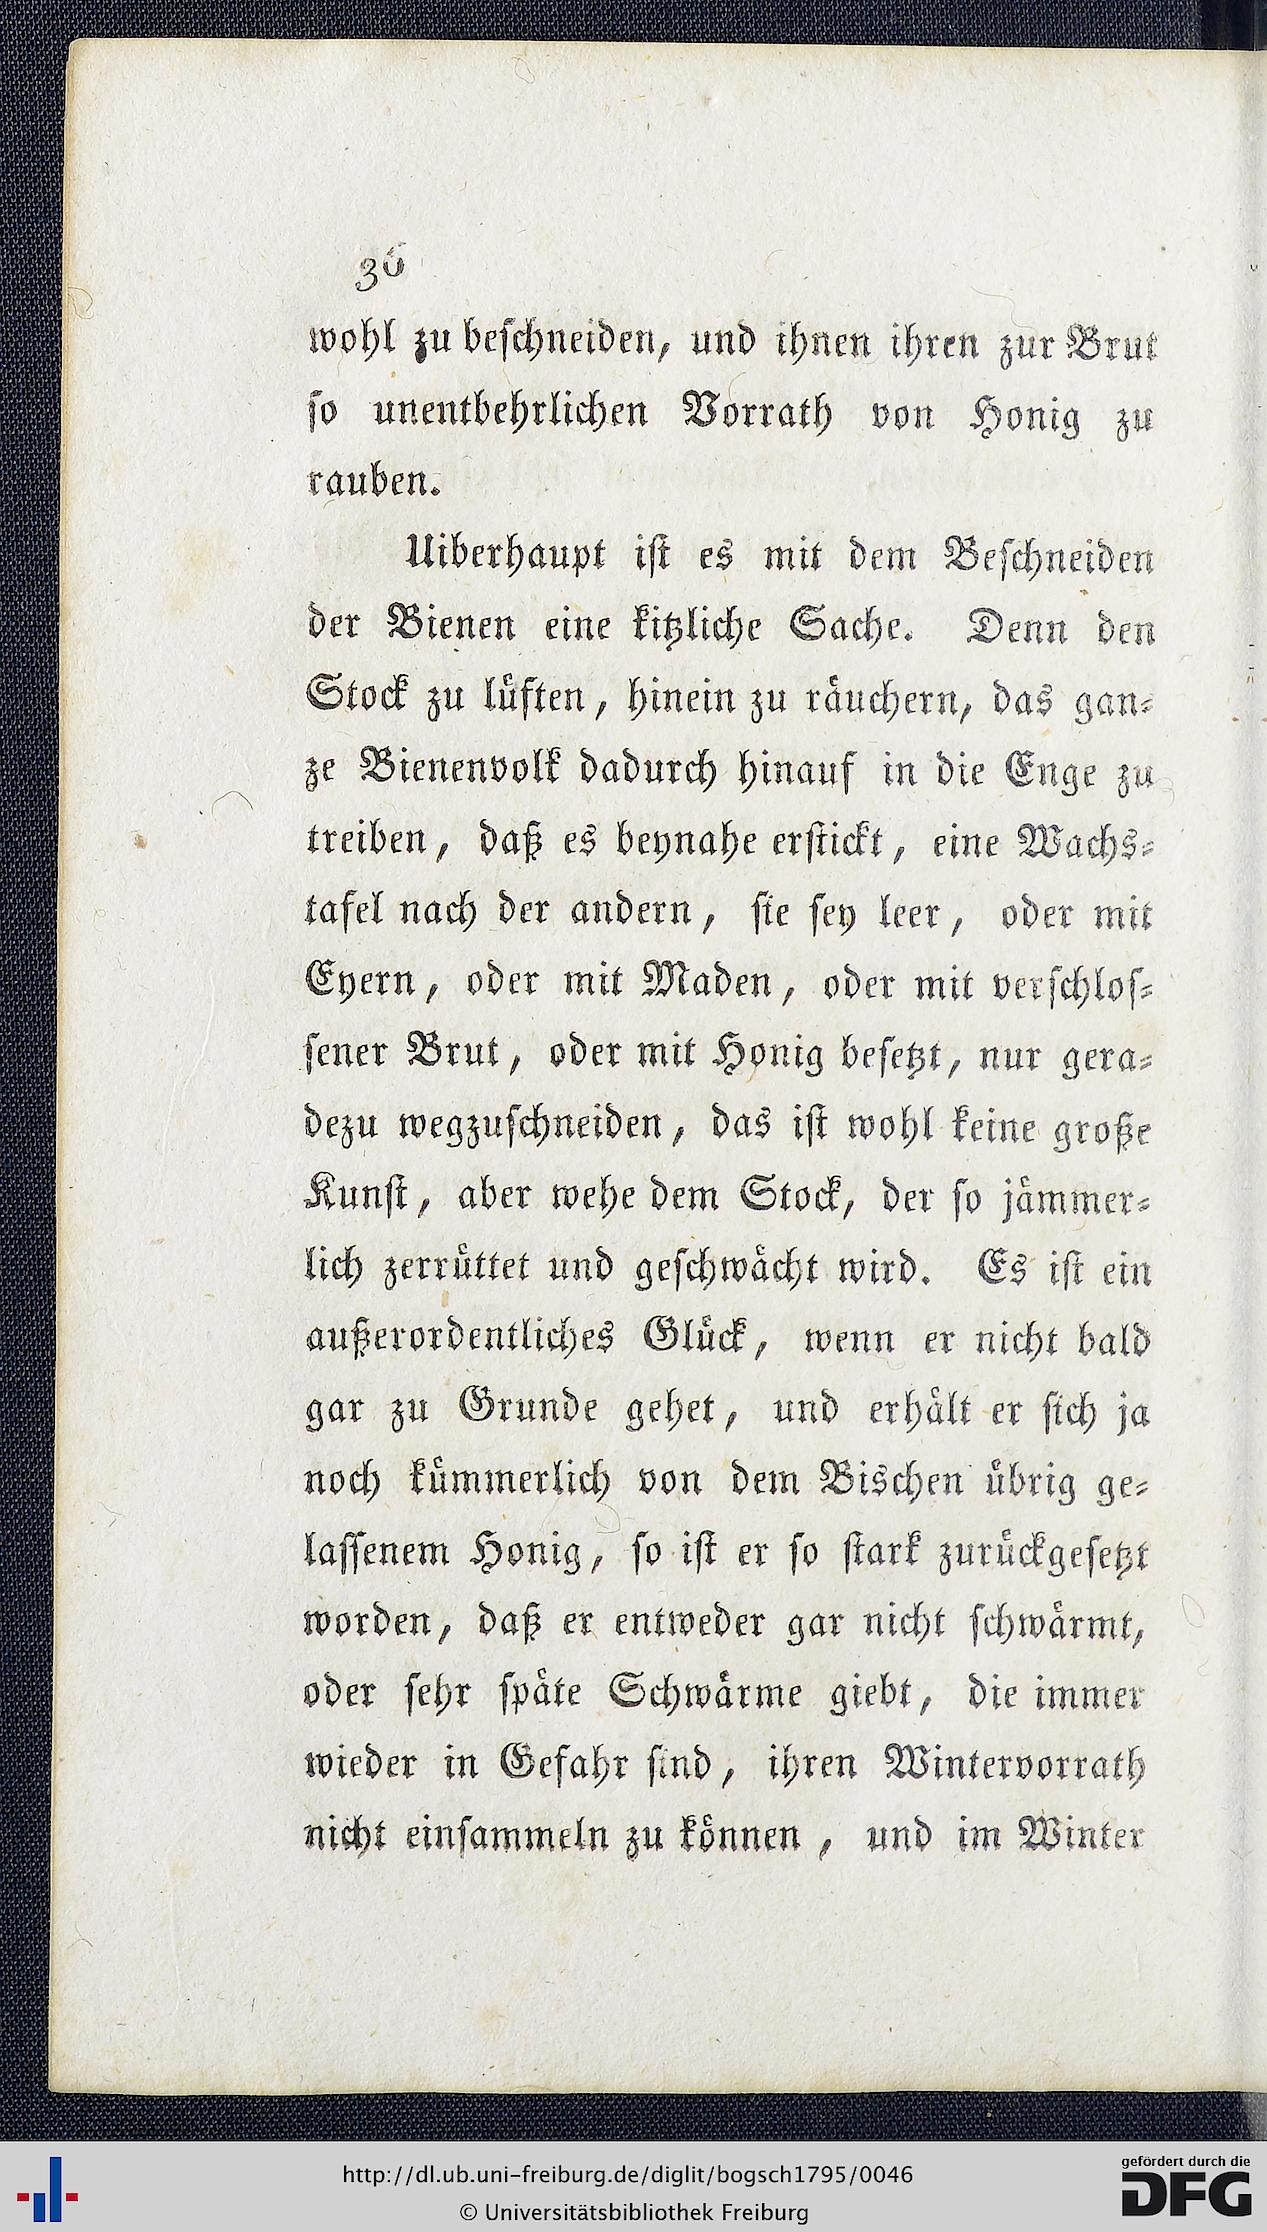 36
wohl zu beschneiden, und ihnen ihren zur Brut
so unentbehrlichen Vorrath von Honig zu
rauben.
Uiberhaupt ist es mit dem Beschneiden
der Bienen eine kitzliche Sache. Denn den
Stock zu lüften, hinein zu räuchern, das gan⸗
ze Bienenvolk dadurch hinauf in die Enge zu
treiben, daß es beynahe erstickt, eine Wachs⸗
tafel nach der andern, sie sey leer, oder mit
Eyern, oder mit Maden, oder mit verschlos⸗
sener Brut, oder mit Honig besetzt, nur gera⸗
dezu wegzuschneiden, das ist wohl keine große
Kunst, aber wehe dem Stock, der so jämmer⸗
lich zerrüttet und geschwächt wird. Es ist ein
außerordentliches Glück, wenn er nicht bald
gar zu Grunde gehet, und erhält er sich ja
noch kümmerlich von dem Bischen übrig ge⸗
lassenem Honig, so ist er so stark zurückgesetzt
worden, daß er entweder gar nicht schwärmt,
oder sehr späte Schwärme giebt, die immer
wieder in Gefahr sind, ihren Wintervorrath
nicht einsammeln zu können, und im Winter
http://dl.ub.uni-freiburg.de/diglit/bogsch1795/0046
© Universitätsbibliothek Freiburg
gefördert durch die
DFG